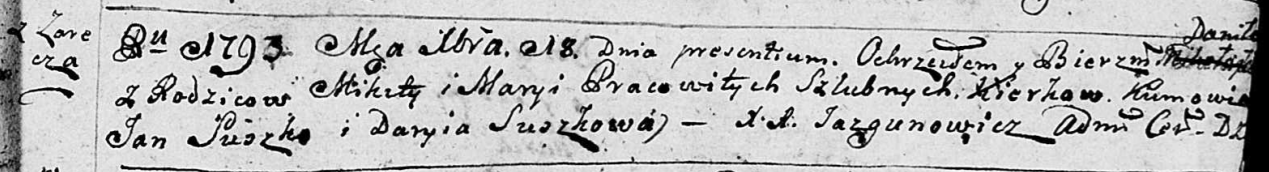 z Zare
cza
Ru 1793 Msca Xbra. 18. Dnia presentium. Ochrzciłem y Bierzm Daniło
z Rodzicow Mikity i Maryi Pracowitych Szlubnych. Kierkow. Kumowie
Jan Suszko i Daryia Suszkowa) — X. A. Jazgunowicz Adm Cer. Dz